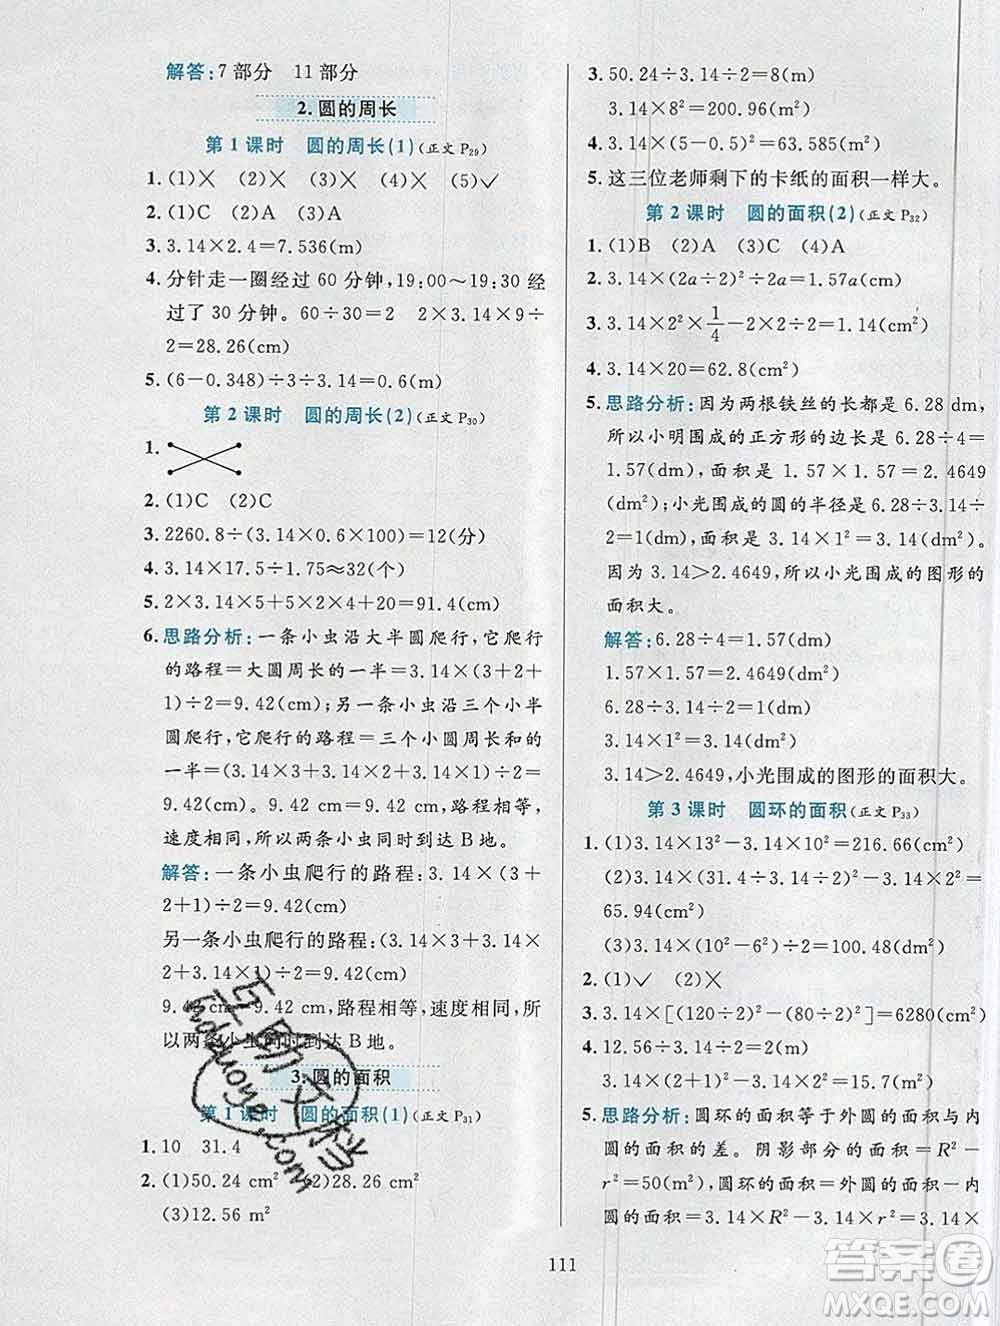 解答:7部分　11部分
2.圆的周长
第1课时　圆的周长(1)(正文P₂₉)
1.(1)×　(2)×　(3)×　(4)×　(5)✓
2.(1)C　(2)A　(3)A
3.3.14×2.4=7.536(m)
4.分针走一圈经过60分钟,19:00~19:30经
过了30分钟。60÷30=2　2×3.14×9÷
2=28.26(cm)
5.(6-0.348)÷3÷3.14=0.6(m)
第2课时　圆的周长(2)(正文P₃₀)
1.
2.(1)C　(2)C
3.2260.8÷(3.14×0.6×100)=12(分)
4.3.14×17.5÷1.75≈32(个)
5.2×3.14×5+5×2×4+20=91.4(cm)
6.思路分析:一条小虫沿大半圆爬行,它爬行
的路程=大圆周长的一半=3.14×(3+2+
1)÷2=9.42(cm);另一条小虫沿三个小半
圆爬行,它爬行的路程=三个小圆周长和的
一半=(3.14×3+3.14×2+3.14×1)÷2=
9.42(cm)。9.42cm=9.42cm,路程相等,
速度相同,所以两条小虫同时到达B地。
解答:一条小虫爬行的路程:3.14×(3+
2+1)÷2=9.42(cm)
另一条小虫爬行的路程:(3.14×3+3.14×
2+3.14×1)÷2=9.42(cm)
9.42 cm=9.42 cm,路程相等,速度相同,所
以两条小虫同时到达B地。
3.圆的面积
第1课时　圆的面积(1)(正文P₃₁)
1.10　31.4
2.(1)50.24 cm²　(2)28.26 cm²
(3)12.56 m²
3.50.24÷3.14÷2=8(m)
3.14×8²=200.96(m²)
4.3.14×(5-0.5)²=63.585(m²)
5.这三位老师剩下的卡纸的面积一样大。
第2课时　圆的面积(2)(正文P₃₂)
1.(1)B　(2)A　(3)B　(4)A
2.3.14×(2a÷2)²÷2a=1.57a(cm)
3.3.14×2²×1/4-2×2÷2=1.14(cm²)
4.3.14×20=62.8(cm²)
5.思路分析:因为两根铁丝的长都是6.28 dm,
所以小明围成的正方形的边长是6.28÷4=
1.57(dm),面积是1.57×1.57=2.4649
(dm²);小光围成的圆的半径是6.28÷3.14÷
2=1(dm),面积是3.14×1²=3.14(dm²)。
因为3.14>2.4649,所以小光围成的图形的
面积大。
解答:6.28÷4=1.57(dm)
1.57×1.57=2.4649(dm²)
6.28÷3.14÷2=1(dm)
3.14×1²=3.14(dm²)
3.14>2.4649,小光围成的图形的面积大。
第3课时　圆环的面积(正文P₃₃)
1.(1)3.14×13²-3.14×10²=216.66(cm²)
(2)3.14×(31.4÷3.14÷2)²-3.14×2²=
65.94(cm²)
(3)3.14×(10²-6²)÷2=100.48(cm²)
2.(1)✓　(2)×
3.3.14×[(120÷2)²-(80÷2)²]=6280(cm²)
4.12.56÷3.14÷2=2(m)
3.14×(2+1)²-3.14×2²=15.7(m²)
5.思路分析:圆环的面积等于外圆的面积与内
圆的面积的差。阴影部分的面积是R²-
r²=50(m²),圆环的面积=外圆的面积-内
圆的面积=3.14×R²-3.14×r²=3.14×
111
互助文档
hdzuoye.com
答案圈
MXQE.COM